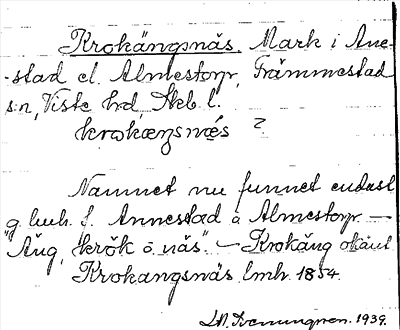 Krokängsnäs. Mark i Ane-
-stad el. Almestorp, Främmestad
s:n, Viste hd, Skb. l.
krokæŋsnǽs ?
Namnet nu funnet endast
g. lmh. f. Annestad o Almestorp. —
"Äng, krök o näs". — Krokäng okänt
Krokangsnäs lmh. 1854.
1939.